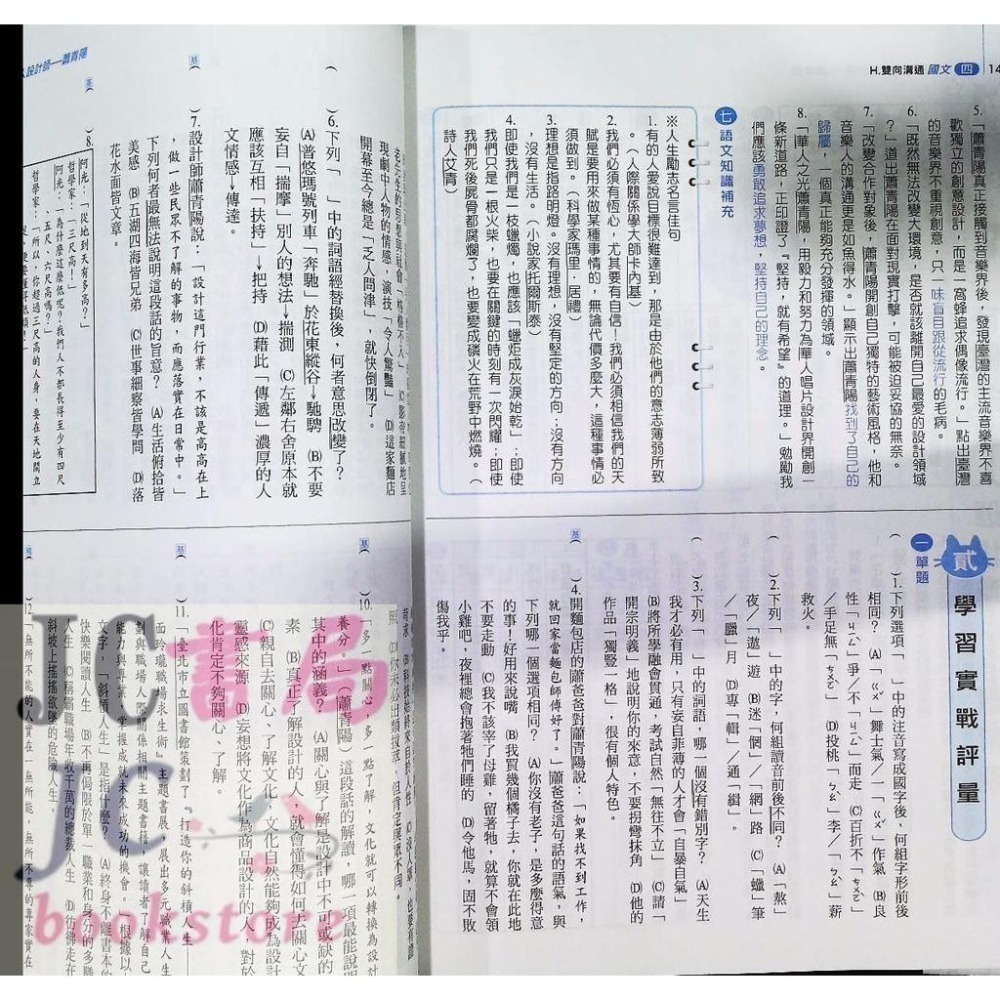 H.雙向溝通 國文 四 14
5.「蕭青陽真正接觸到音樂界後，發現臺灣的主流音樂界不喜
歡獨立的創意設計，而是一窩蜂追求偶像流行。」點出臺灣
的音樂界不重視創意，只一味盲目跟從流行的毛病。
6.「既然無法改變大環境，是否就該離開自己最愛的設計領域
？」道出蕭青陽在面對現實打擊，可能被迫妥協的無奈。
7.「改變合作對象後，蕭青陽開創自己獨特的藝術風格，他和
音樂人的溝通更是如魚得水。」顯示出蕭青陽找到了自己的
歸屬，一個真正能夠充分發揮的領域。
8.「華人之光蕭青陽，用毅力和努力為華人唱片設計界開創一
條新道路，正印證了『堅持，就有希望』的道理。」勉勵我
們應該勇敢追求夢想，堅持自己的理念。
七 語文知識補充
※人生勵志名言佳句
1.有的人愛說目標很難達到，那是由於他們的意志薄弱所致
。（人際關係學大師卡內基）
2.我們必須有恆心，尤其要有自信！我們必須相信我們的天
賦是要用來做某種事情的，無論代價多麼大，這種事情必
須做到。（科學家瑪里．居禮）
3.理想是指路明燈。沒有理想，沒有堅定的方向；沒有方向
，沒有生活。（小說家托爾斯泰）
4.即使我們是一枝蠟燭，也應該「蠟炬成灰淚始乾」；即使
我們只是一根火柴，也要在關鍵的時刻有一次閃耀；即使
我們死後屍骨都腐爛了，也要變成磷火在荒野中燃燒。（
詩人艾青）
貳 學習實戰評量
一 單題
（ ）1.下列選項「 」中的注音寫成國字後，何組字形前後
相同？ (A)「ㄍㄨˇ」舞士氣／一「ㄍㄨˇ」作氣 (B)良
性「ㄐㄧㄥˋ」爭／不「ㄐㄧㄥˋ」而走 (C)百折不「ㄋㄠˊ」
／手足無「ㄘㄨㄛˋ」 (D)投桃「ㄅㄠˋ」李／「ㄅㄠˋ」薪
救火。
（ ）2.下列「 」中的字，何組讀音前後不同？ (A)「熬」
夜／「遨」遊 (B)迷「惘」／「網」路 (C)「蠟」筆
／「臘」月 (D)專「輯」／通「緝」。
（ ）3.下列「 」中的詞語，哪一個沒有錯別字？ (A)天生
我才必有用，只有妄自菲薄的人才會「自暴自氣」
(B)將所學融會貫通，考試自然「無往不立」 (C)請「
開宗明義」地說明你的來意，不要拐彎抹角 (D)他的
作品「獨豎一格」，很有個人特色。
基（ ）4.開麵包店的蕭爸爸對蕭青陽說：「如果找不到工作，
就回家當麵包師傅好了。」蕭爸爸這句話的語氣，與
下列哪一個選項相同？ (A)你沒有老子，是多麼得意
的事！好用來說嘴 (B)我買幾個橘子去，你就在此地
不要走動 (C)我不該宰了母雞，留著牠，就算不會領
小雞吧，夜裡總會抱著牠們睡的 (D)令他馬，固不敗
傷我乎。
設計師──蕭青陽
現劇中人物的情感，演技「令人驚豔」 (D)這家麵店
開幕至今總是「乏人問津」，就快倒閉了。
（ ）6.下列「 」中的詞語經替換後，何者意思改變了？
(A)普悠瑪號列車「奔馳」於花東縱谷→馳騁 (B)不要
妄自「揣摩」別人的想法→揣測 (C)左鄰右舍原本就
應該互相「扶持」→把持 (D)藉此「傳遞」濃厚的人
文情感→傳達。
基（ ）7.設計師蕭青陽說：「設計這門行業，不該是高高在上
，做一些民眾不了解的事物，而應落實在日常中。」
下列何者最無法說明這段話的旨意？ (A)生活俯拾皆
美感 (B)五湖四海皆兄弟 (C)世事細察皆學問 (D)落
花水面皆文章。
基（ ）8.
阿光：「從地到天有多高？」
哲學家：「三尺高！」
阿光：「為什麼這麼低呢？我們人不都長得至少有四尺
、五尺、六尺高嗎？」
哲學家：「所以，你超過三尺高的人身，要在天地間立
基（ ）10.「多一點關心，多一點了解，文化就可以轉換為設計
養分。」（蕭青陽）這段話的解讀，哪一項最能說明
其中的涵義？ (A)關心與了解是設計中不可或缺的
素 (B)真正了解設計的人，就會懂得如何去關心文
(C)親自去關心、了解文化，文化自然能夠成為設計
靈感來源 (D)妄想將文化作為商品設計的人，對於
化肯定不夠關心、了解。
基（ ）11.「臺北市立圖書館策劃了『打造你的斜槓人生
面玲瓏職場求生術』主題書展，展出多元職業人生
劃與職場人際關係相關主題書籍，讓讀者了解自己
能力與專業，掌握成就未來成功的機會。」根據以
文字，「斜槓人生」是指什麼？ (A)終身不離書本的
快樂閱讀人生 (B)不再侷限於單一職業和身分的多職
人生 (C)稱霸職場年收千萬的總裁人生 (D)彷彿走在
斜坡上搖搖欲墜的危險人生。
基（ ）12.「無所不能的人實在一無所能，無所不專的專家實在
JC書局
JC
bookstore